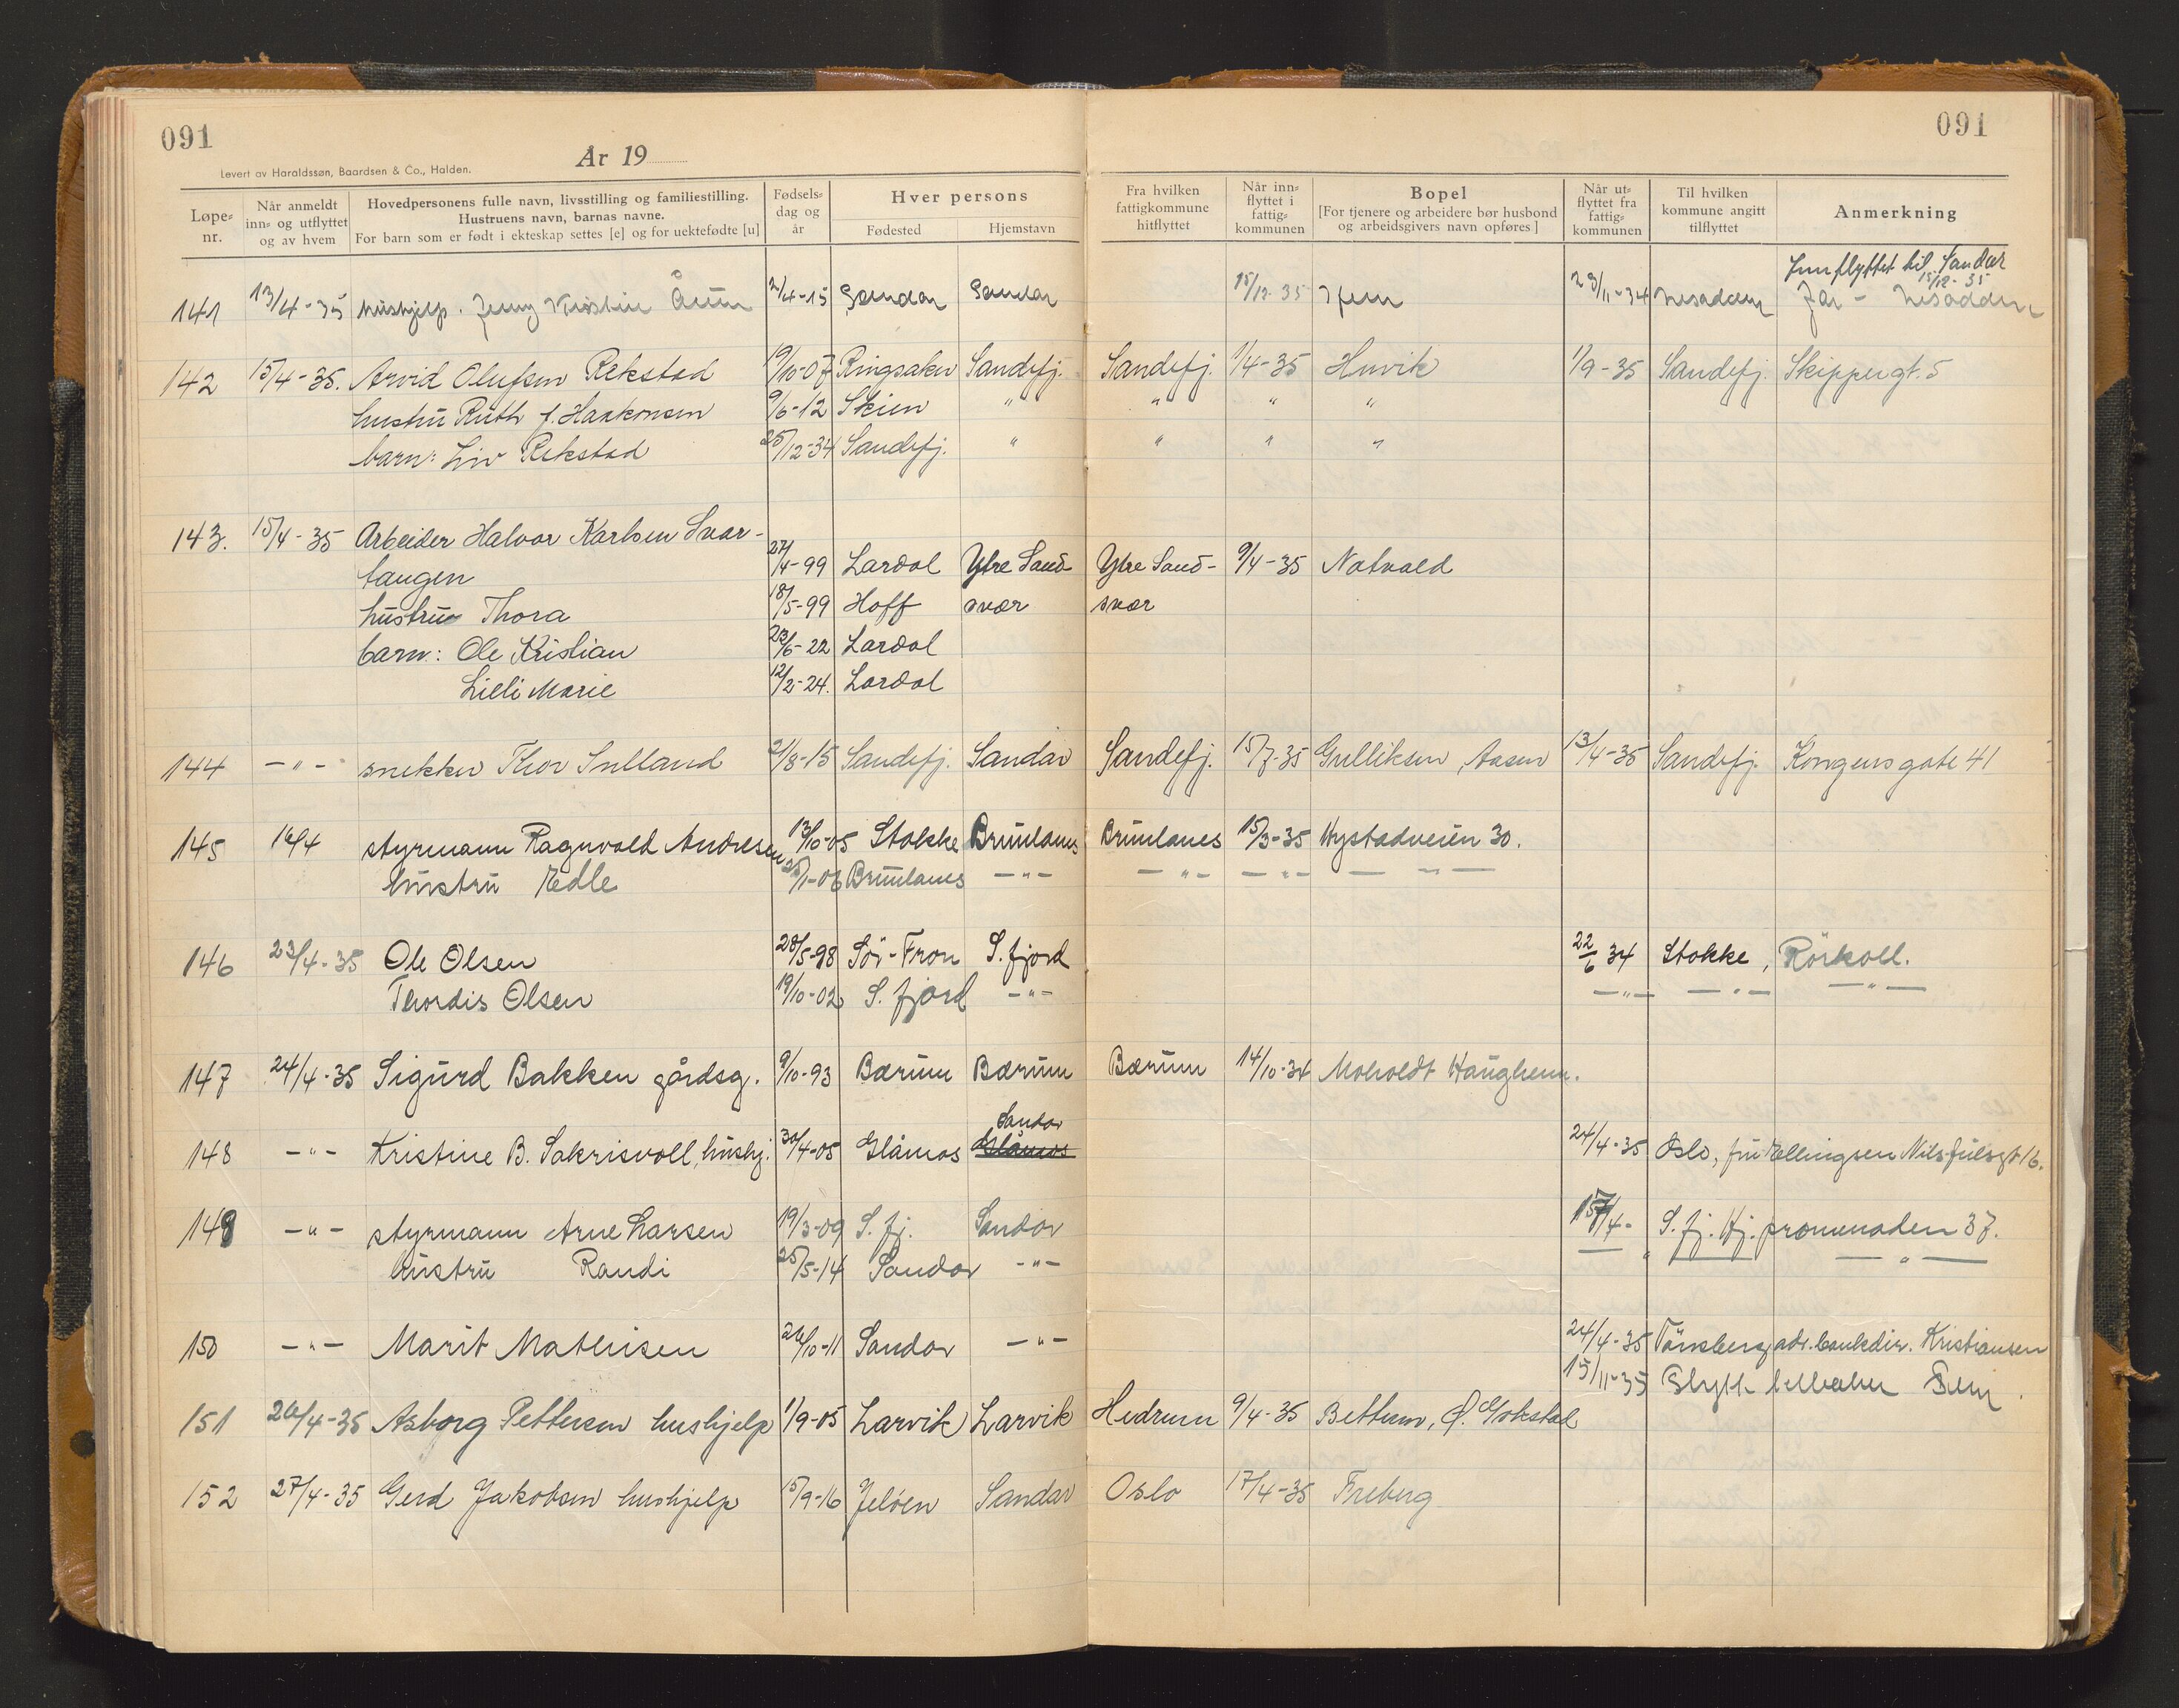 091
091
År 19
Levert av Haraldssøn, Baardsen & Co., Halden.
Løpe-nr. Når anmeldt inn- og utflyttet og av hvem Hovedpersonens fulle navn, livsstilling og familiestilling. Hustruens navn, barnas navne. For barn som er født i ekteskap settes [e] og for uektefødte [u] Fødsels-dag og år Hver persons Fødested Hjemstavn Fra hvilken fattigkommune hitflyttet Når inn-flyttet i fattig-kommunen Bopel [For tjenere og arbeidere bør husbond og arbeidsgivers navn opføres] Når ut-flyttet fra fattig-kommunen Til hvilken kommune angitt tilflyttet Anmerkning
Innflyttet til Sandar 15/12-35
141 13/4-35 hushjelp. Jenny Kristine 2/4-15 Sandar Sandar 15/12-35 Hjem 23/11-34 Nesodden Nesodden
142 15/4-35. Arvid Olufsen Rekstad 19/10-07 Ringsaker Sandefj. Sandefj. 1/4-35 Huvik 1/9-35 Sandefj. Skippergt. 5
hustru Ruth f. Haakonsen 9/6-12 Skien " " " "
barn: Liv Rekstad 25/12-34 Sandefj. " " " "
143. 15/4-35 Arbeider Halvor Karlsen Svar-
tangen 27/4-99 Lardal Ytre Sand- Ytre Sand- 9/4-35 Natvald
hustru Thora 18/5-99 Hoff svær svær
barn: Ole Kristian 23/6-22 Lardal
Lilli Marie 12/2-24. Lardal
144 -"- snekker Thor Sulland 21/8-15 Sandefj. Sandar Sandefj. 15/7-35 Gulliksen, Aasen 13/4-35 Sandefj. Kongensgate 41
145 16/4 styrmann Ragnvald Andresen 13/10-05 Stokke Brunlanes Brunlanes 15/3-35 Hystadveien 30.
hustru Edle Brunlanes -"- -"- -"- -"-
146 23/4-35 Ole Olsen 28/5-98 Sör-Fron S. fjord 22/6 34 Stokke, Rörkoll.
Thordis Olsen 19/10-02 S. fjord -"- -"- -"- -"-
147 24/4-35 Sigurd Bakken gårdsg. 9/10-93 Bærum Bærum Bærum 14/10-34 Moholdt Haughem.
Sandar
148 -"- Kristine B. Sakrisvoll, hushj. 30/4-05 Glåmos Glåmos 24/4-35 Oslo, fru Ellingsen Nils Juelsgt 16.
149 -"- styrmann Arne Larsen 19/3-09 S. fj. Sandar 15/4- S. fj. Hj. promenaden 37.
hustru Randi 25/5-14 Sandar -"- -"- -"-
150 -"- Marit Mathisen 26/10-11 Sandar -"- 24/4-35 Tönsberg adr. bankdir. Kristiansen
15/11-35 Flytt tilbake Sem.
151 26/4-35 Asborg Pettersen hushjelp 1/9-05 Larvik Larvik Hedrum 9/4-35 Bettum, Ø. Gokstad
152 27/4-35 Gerd Jakobsen hushjelp 15/9-16 Jelöen Sandar Oslo 17/4-35 Freberg